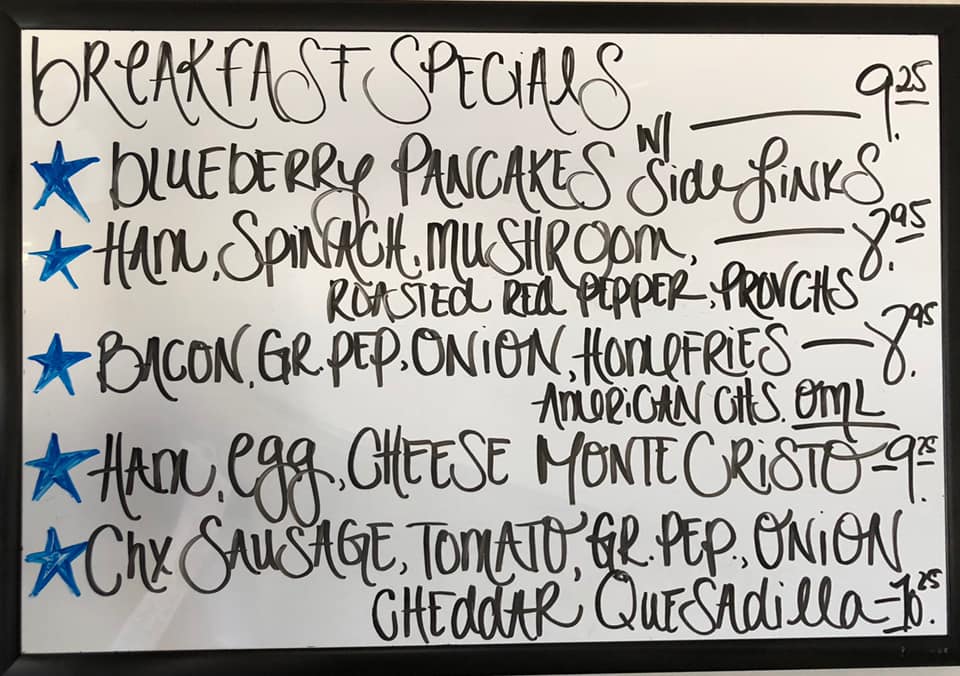 BREAKFAST SPECIALS
BLUEBERRY PANCAKES W/ Side LINKS — 9.25
HAM, SPINACH, MUSHROOM, — 8.95
ROASTED RED PEPPER, PROV CHS
BACON, GR. PEP, ONION, HOMEFRIES — 8.95
AMERICAN CHS. OML
HAM, egg, CHEESE MONTE CRISTO - 9.25
Chx SAUSAGE, TOMATO, GR. PEP., ONION
CHEddAR QUESAdilla - 10.25